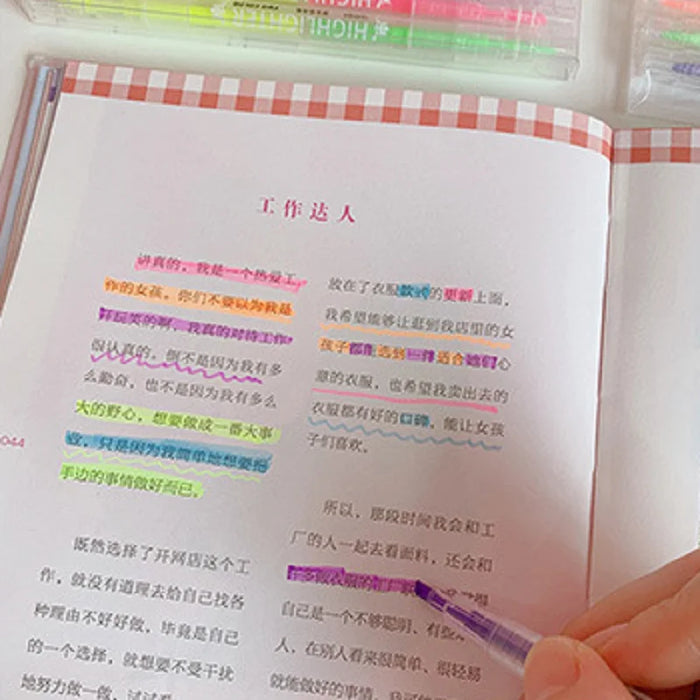 HIGHLIGHTER
HIGHLIGHTER
工作达人
讲真的，我是一个热爱工
作的女孩。你们不要以为我是
开玩笑的啊，我真的对待工作
很认真的。倒不是因为我有多
么勤奋，也不是因为我有多么
大的野心，想要做成一番大事
业，只是因为我简单地想要把
手边的事情做好而已。
既然选择了开网店这个工
作，就没有道理去给自己找各
种理由不好好做，毕竟是自己
的一个选择，就想要不受干扰
地努力做一做，试试看
044
放在了衣服款式的更新上面，
我希望能够让逛到我店里的女
孩子都能选到一件适合她们心
意的衣服，也希望我卖出去的
衣服都有好的口碑，能让女孩
子们喜欢。
所以，那段时间我会和工
厂的人一起去看面料，还会和
做衣服的
自己是一个不够聪明、有些
人，在别人看来很简单、很轻易
就能做好的事情，我可能